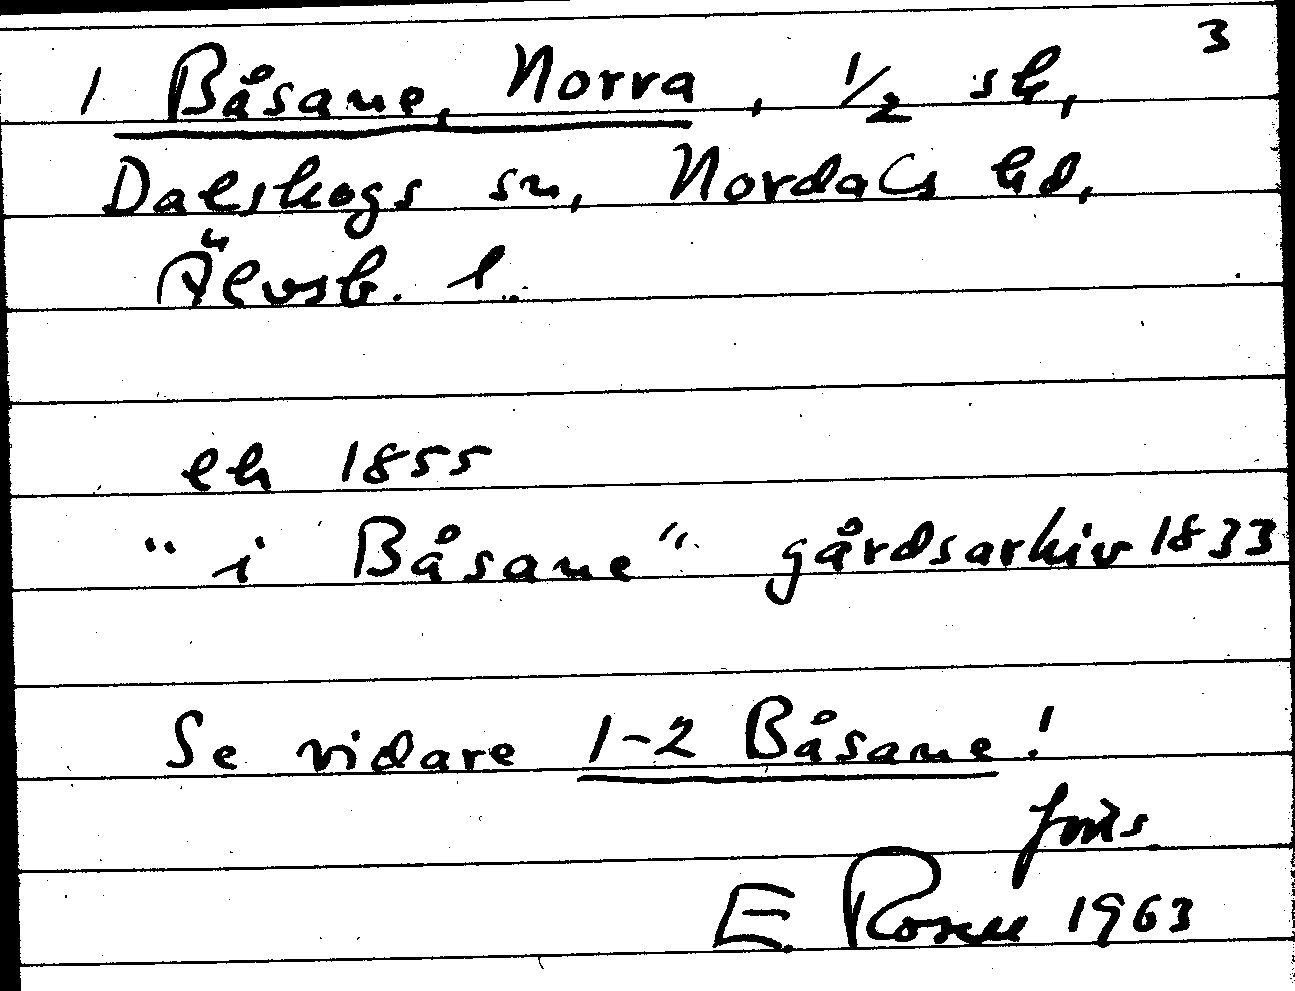 3
1 Båsane, Norra, 1/2 sk,
Dalskogs sn, Nordals hd,
Älvsb. l.
ek 1855
"i Båsane" gårdsarkiv 1833
Se vidare 1-2 Båsane!
forts.
E. Rosell 1963